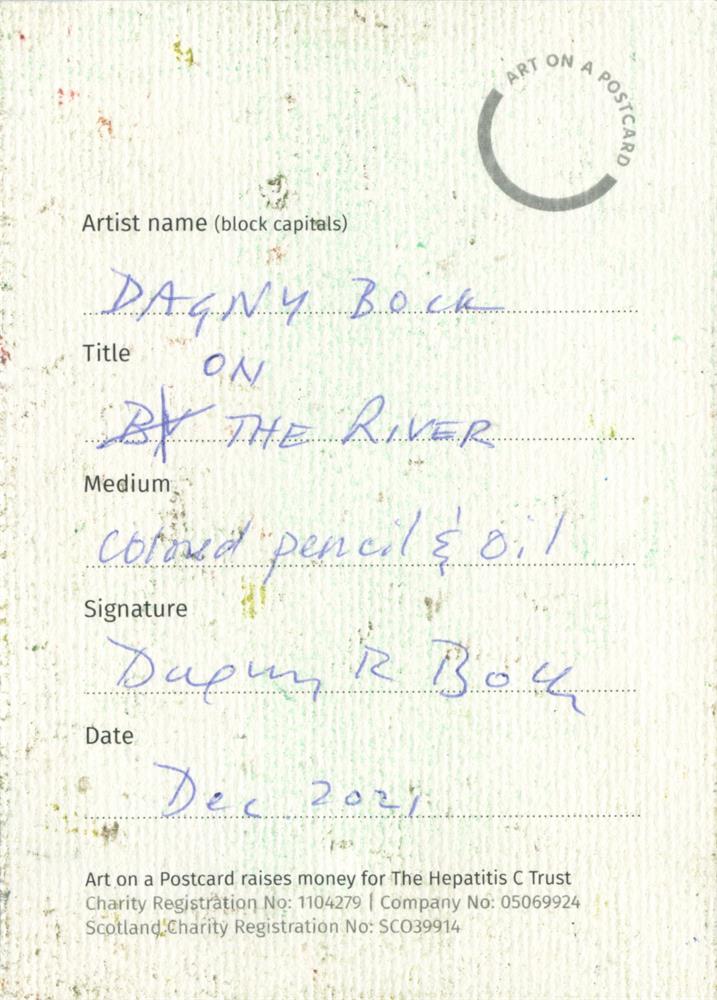 ART ON A POSTCARD
Artist name (block capitals)
DAGNY BOCK
Title
ON
BY THE RIVER
Medium
colored pencil & oil
Signature
Dagny R Bock
Date
Dec 2021
Art on a Postcard raises money for The Hepatitis C Trust
Charity Registration No: 1104279 | Company No: 05069924
Scotland Charity Registration No: SCO39914